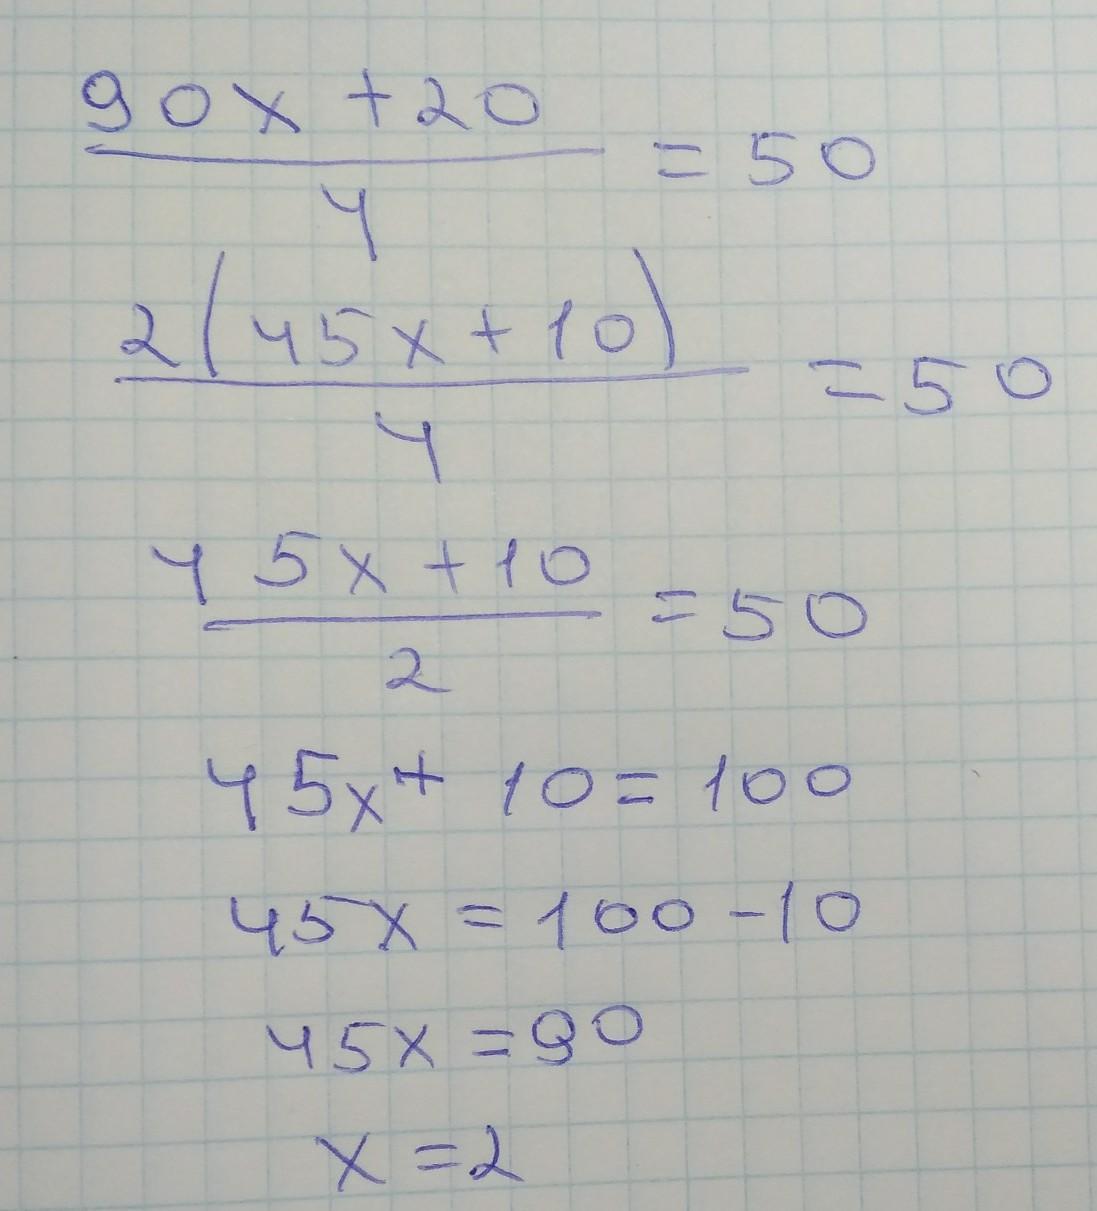 90x + 20
/ 4 = 50
2(45x + 10)
/ 4 = 50
45x + 10
/ 2 = 50
45x + 10 = 100
45x = 100 - 10
45x = 90
x = 2